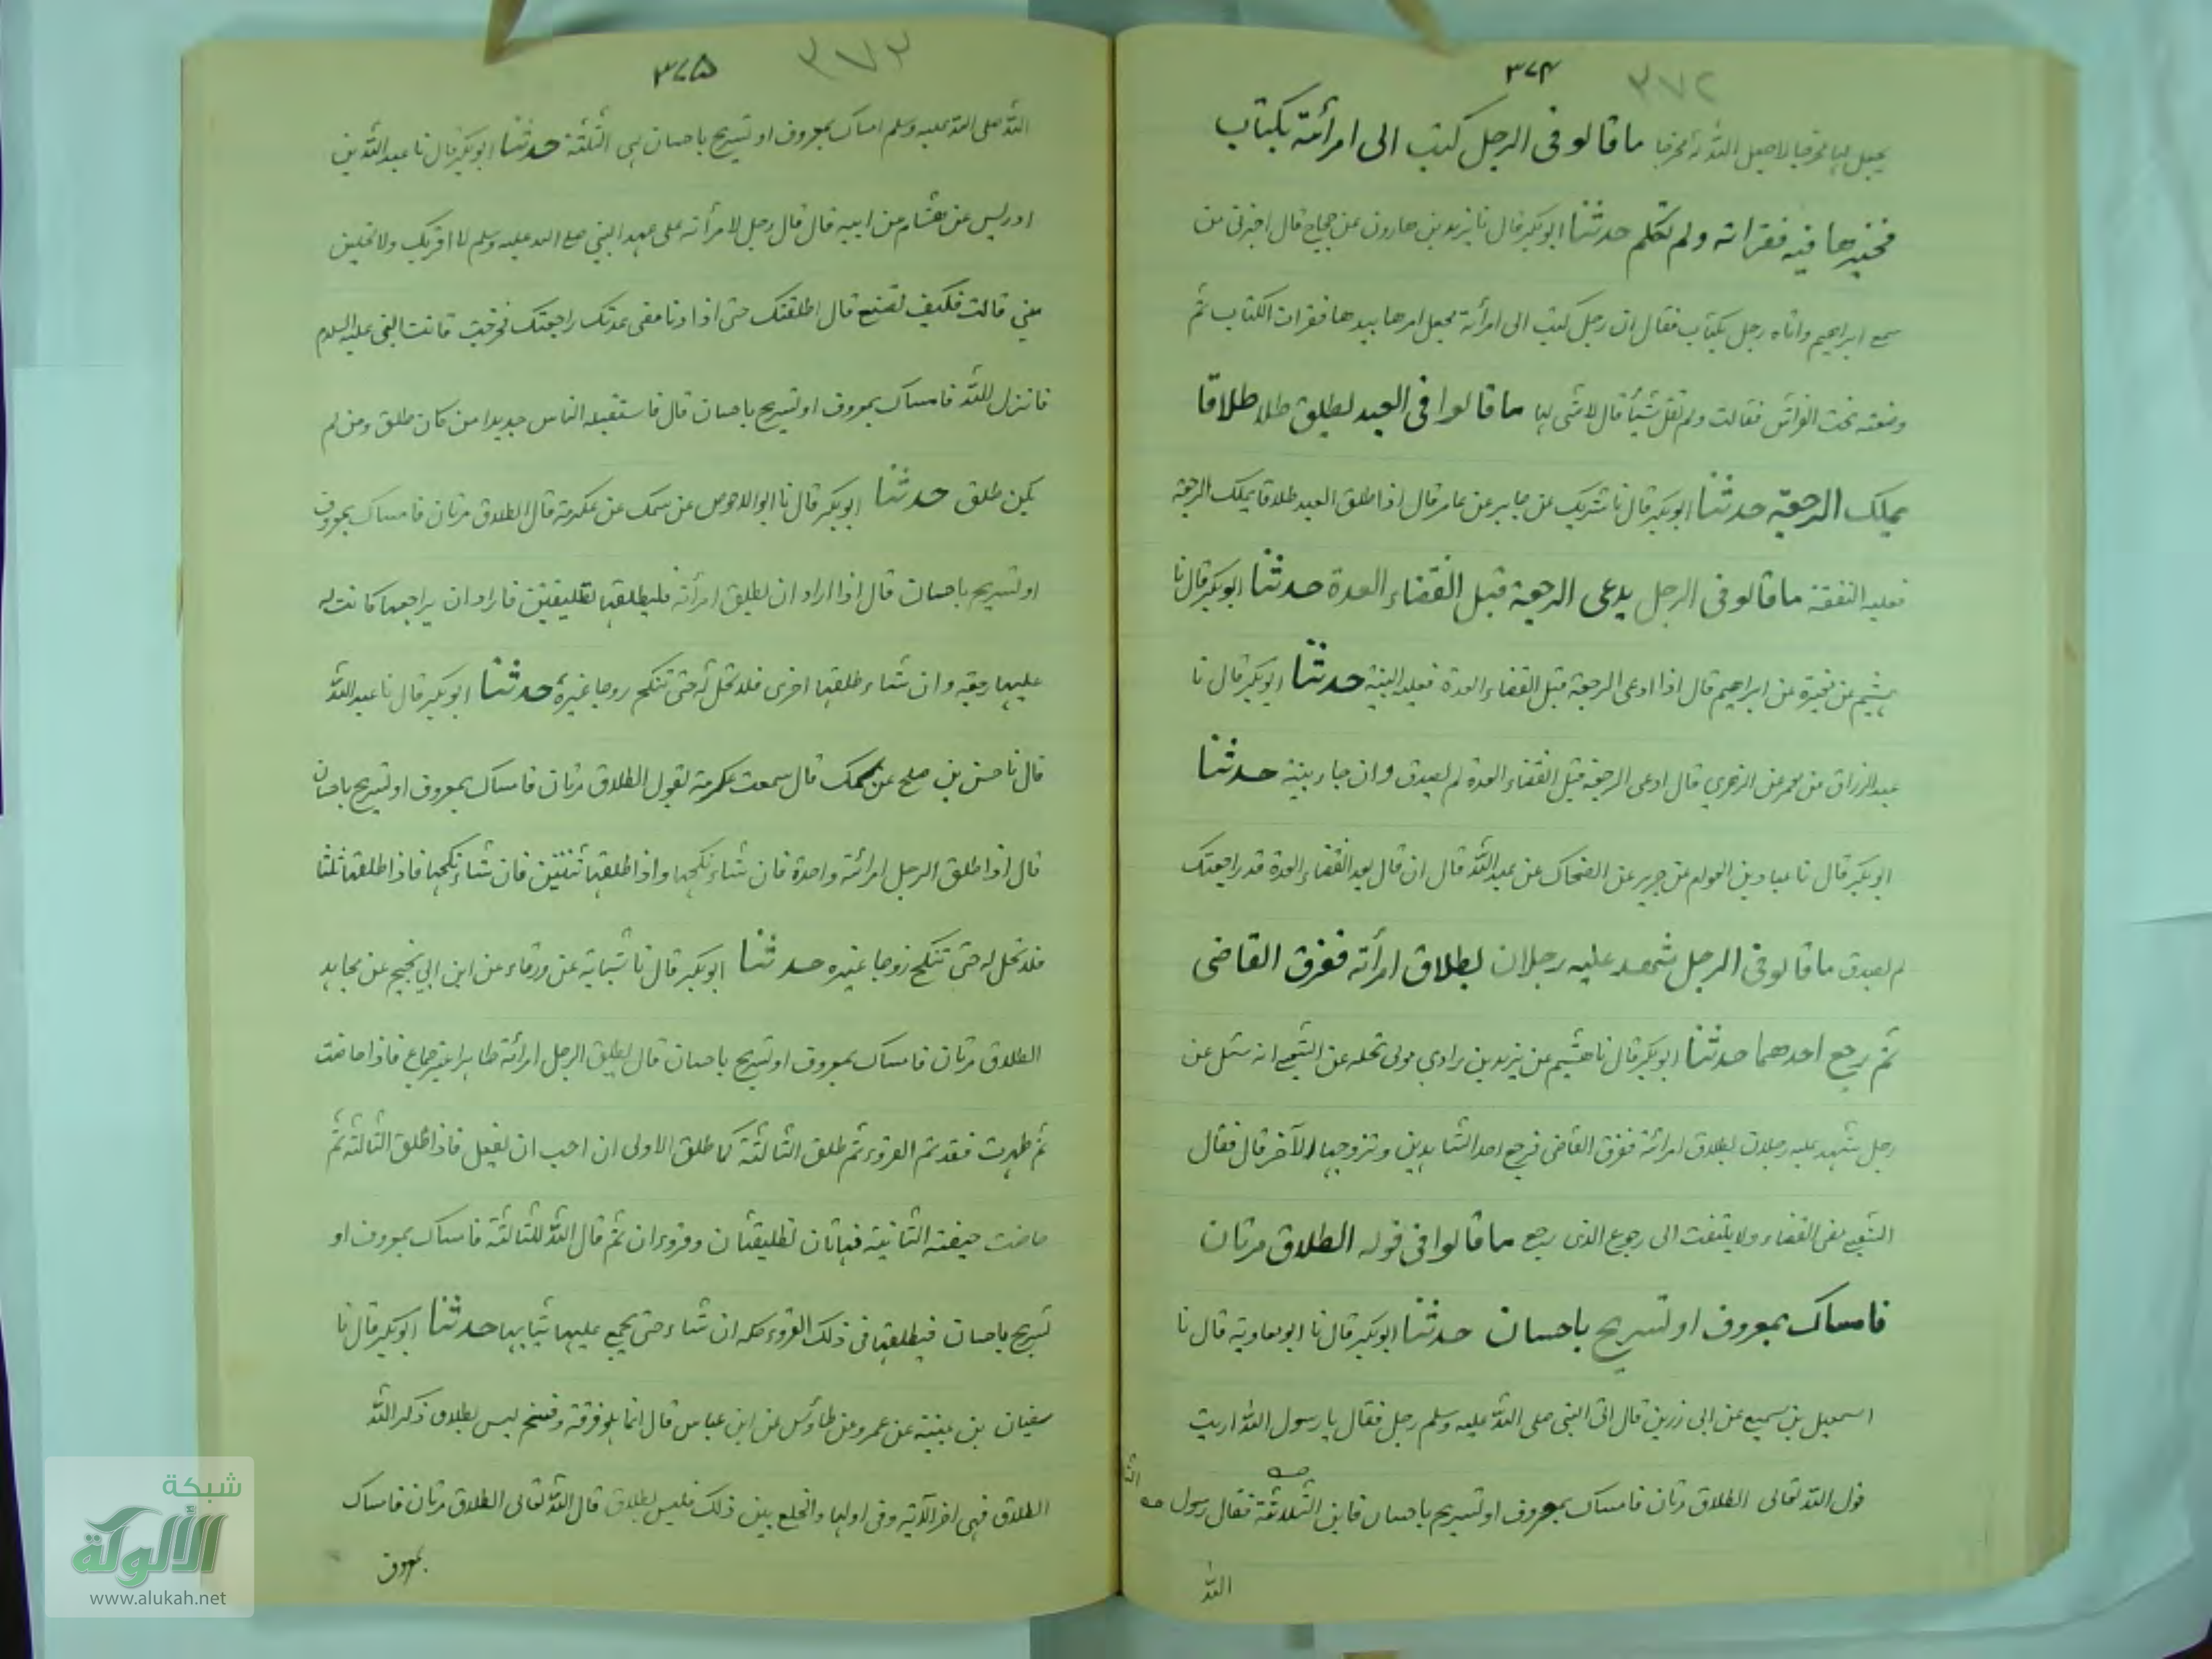 ٣٧٤ ٣٧٢
يجعل لها مخرجا لا جعل الله له مخرجا ما قالو فى الرجل كتب الى امرأته بكتاب
فخيرها فيه فقراته ولم تكلم حدثنا ابو بكر قال نا يزيد بن هارون عن حجاج قال اخبرنى من
سمع ابراهيم واتاه رجل بكتاب فقال ان رجل كتب الى امرأته يجعل امرها بيدها فقرات الكتاب ثم
وضعته تحت الفراش فقالت ولم تقل شيأ قال لا شى لها ما قالوا فى العبد يطلق طلاقا
يملك الرجعة حدثنا ابو بكر قال نا شريك عن جابر عن عامر قال اذا طلق العبد طلاقا يملك الرجعة
فعليه النفقة ما قالو فى الرجل يدعى الرجعة قبل انقضاء العدة حدثنا ابو بكر قال نا
هشيم عن مغيرة عن ابراهيم قال اذا ادعى الرجعة قبل انقضاء العدة فعليه البينة حدثنا ابو بكر قال نا
عبد الرزاق عن معمر عن الزهري قال ادعى الرجعة قبل انقضاء العدة لم يصدق وان جاء ببينة حدثنا
ابو بكر قال نا عباد بن العوام عن جرير عن الضحاك عن عبد الله قال ان قال بعد انقضاء العدة قد راجعتك
لم يصدق ما قالو فى الرجل شهد عليه رجلان بطلاق امرأته ففرق القاضى
ثم رجع احدهما حدثنا ابو بكر قال نا هشيم عن يزيد بن زادي مولى بحله عن الشعبي انه سئل عن
رجل شهد عليه رجلان بطلاق امرأته ففرق القاضى فرجع احد الشاهدين وتزوجها الآخر قال فقال
الشعبي مضى القضاء ولا يلتفت الى رجوع الذى رجع ما قالوا فى قوله الطلاق مرتان
فامساك بمعروف او تسريح باحسان حدثنا ابو بكر قال نا ابو معاوية قال نا
اسمعيل بن سميع عن ابى رزين قال اتى النبى صلى الله عليه وسلم رجل فقال يا رسول الله اريت
قول الله تعالى الطلاق مرتان فامساك بمعروف او تسريح باحسان فاين الثلاثة فقال رسول
الله
٣٧٥ ٣٧٣
الله صلى الله عليه وسلم امساك بمعروف او تسريح باحسان هى الثلثة حدثنا ابو بكر قال نا عبد الله بن
ادريس عن هشام عن ابيه قال قال رجل لامرأته على عهد النبى صلع الله عليه وسلم لا اقربك ولا تحلين
منى قالت فكيف تصنع قال اطلقتك حتى اذا دنا مضى عدتك راجعتك فخرجت فاتت النبى عليه السلام
فانزل الله فامساك بمعروف او تسريح باحسان قال فاستقبله الناس جديدا من كان طلق ومن لم
يكن طلق حدثنا ابو بكر قال نا ابو الاحوص عن سمك عن عكرمة قال الطلاق مرتان فامساك بمعروف
او تسريح باحسان قال اذا اراد ان يطلق امرأته فليطلقها تطليقتين فاراد ان يراجعها كانت له
عليها رجعة وان شاء طلقها اخرى فلا تحل له حتى تنكح زوجا غيره حدثنا ابو بكر قال نا عبد الله
قال نا حسن بن صلح عن سمك قال سمعت عكرمة يقول الطلاق مرتان فامساك بمعروف او تسريح باحسان
قال اذا طلق الرجل امرأته واحدة فان شاء نكحها واذا طلقها ثنتين فان شاء نكحها فاذا طلقها ثلثا
فلا تحل له حتى تنكح زوجا غيره حدثنا ابو بكر قال نا شبابة عن ورقاء عن ابن ابي نجيح عن مجاهد
الطلاق مرتان فامساك بمعروف او تسريح باحسان قال يطلق الرجل امرأته طاهرا غير جماع فاذا حاضت
ثم طهرت فقد تم القروء ثم طلق الثالثة كما طلق الاولى ان احب ان يفعل فاذا طلق الثالثة ثم
حاضت حيضته الثانية فهاتان تطليقتان وقروءان ثم قال الله للثالثة فامساك بمعروف او
تسريح باحسان فيطلقها فى ذلك القروء كله ان شاء حتى يجمع عليها ثيابها حدثنا ابو بكر قال نا
سفيان بن عيينة عن عمرو عن طاؤس عن ابن عباس قال انما هو فرقة وفسخ ليس بطلاق ذكر الله
الطلاق فهى اخر الآية وفى اولها والخلع بين ذلك فليس بطلاق قال الله تعالى الطلاق مرتان فامساك
بمعروف
شبكة
الألوكة
www.alukah.net